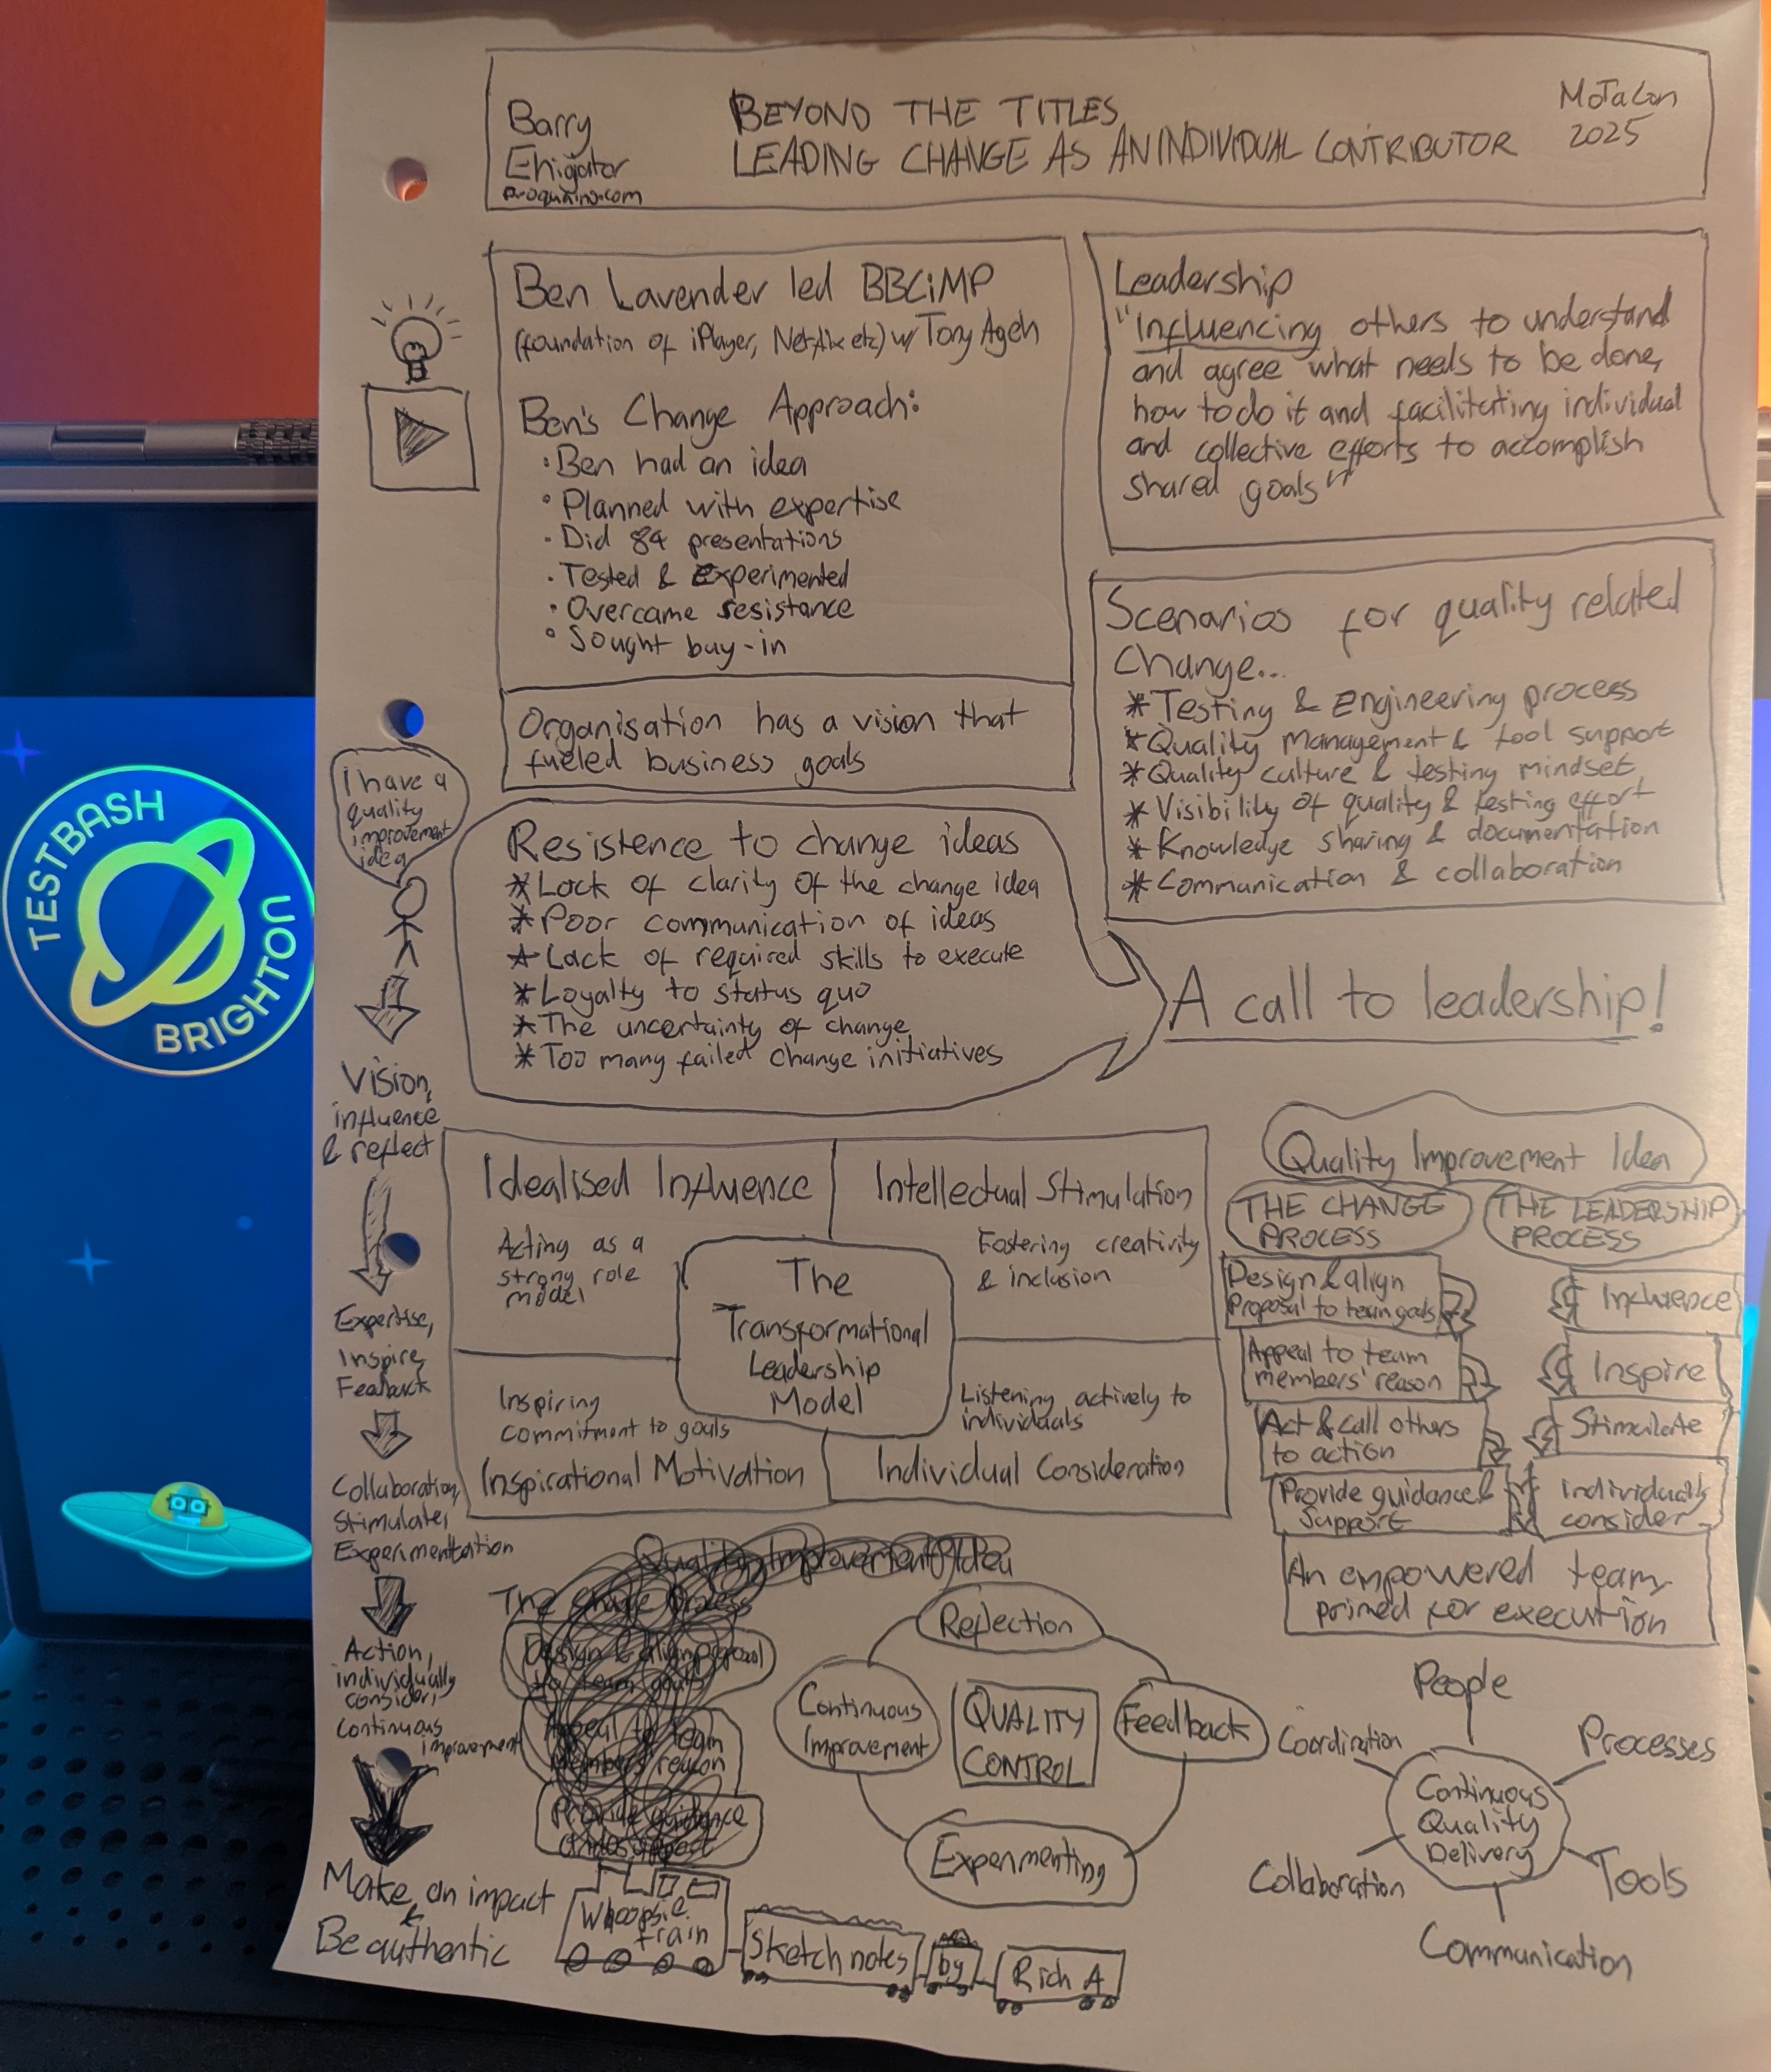 Barry
Ehigiator
BEYOND THE TITLES
LEADING CHANGE AS AN INDIVIDUAL CONTRIBUTOR
MoTaCon
2025
Ben Lavender led BBCiMP
(foundation of iPlayer, Netflix etc) w/ Tony Ageh
Ben's Change Approach:
• Ben had an idea
• Planned with expertise
• Did 84 presentations
• Tested & Experimented
• Overcame resistance
• Sought buy-in
Organisation has a vision that
fueled business goals
Leadership
"Influencing others to understand
and agree what needs to be done,
how to do it and facilitating individual
and collective efforts to accomplish
shared goals"
Scenarios for quality related
change...
* Testing & Engineering process
* Quality Management & tool support
* Quality culture & testing mindset
* Visibility of quality & testing effort
* Knowledge sharing & documentation
* Communication & collaboration
I have a
quality
improvement
idea
Resistence to change ideas
* Lack of clarity of the change idea
* Poor communication of ideas
* Lack of required skills to execute
* Loyalty to status quo
* The uncertainty of change
* Too many failed change initiatives
A call to leadership!
TESTBASH
BRIGHTON
Vision,
influence
& reflect
Expertise,
Inspire,
Feedback
Collaboration,
Stimulate,
Experimentation
Action,
individually
consider,
Continuous
improvement
Make an impact
Be authentic
Idealised Influence
Acting as a
strong role
model
Intellectual Stimulation
Fostering creativity
& inclusion
The
Transformational
Leadership
Model
Inspiring
commitment to goals
Inspirational Motivation
Listening actively to
individuals
Individual Consideration
Quality Improvement Idea
THE CHANGE
PROCESS
THE LEADERSHIP
PROCESS
Design & align
Proposal to team goals
Influence
Appeal to team
members' reason
Inspire
Act & call others
to action
Stimulate
Provide guidance &
Support
individually
consider
An empowered team
primed for execution
Quality Improvement Idea
The change process
Design & align proposal
to team goals
Appeal to team
members reason
Provide guidance
Reflection
Continuous
Improvement
QUALITY
CONTROL
Feedback
Experimenting
People
Coordination
Processes
Continuous
Quality
Delivery
Collaboration
Tools
Communication
Whoopsie
train
Sketch notes
by
Rich A